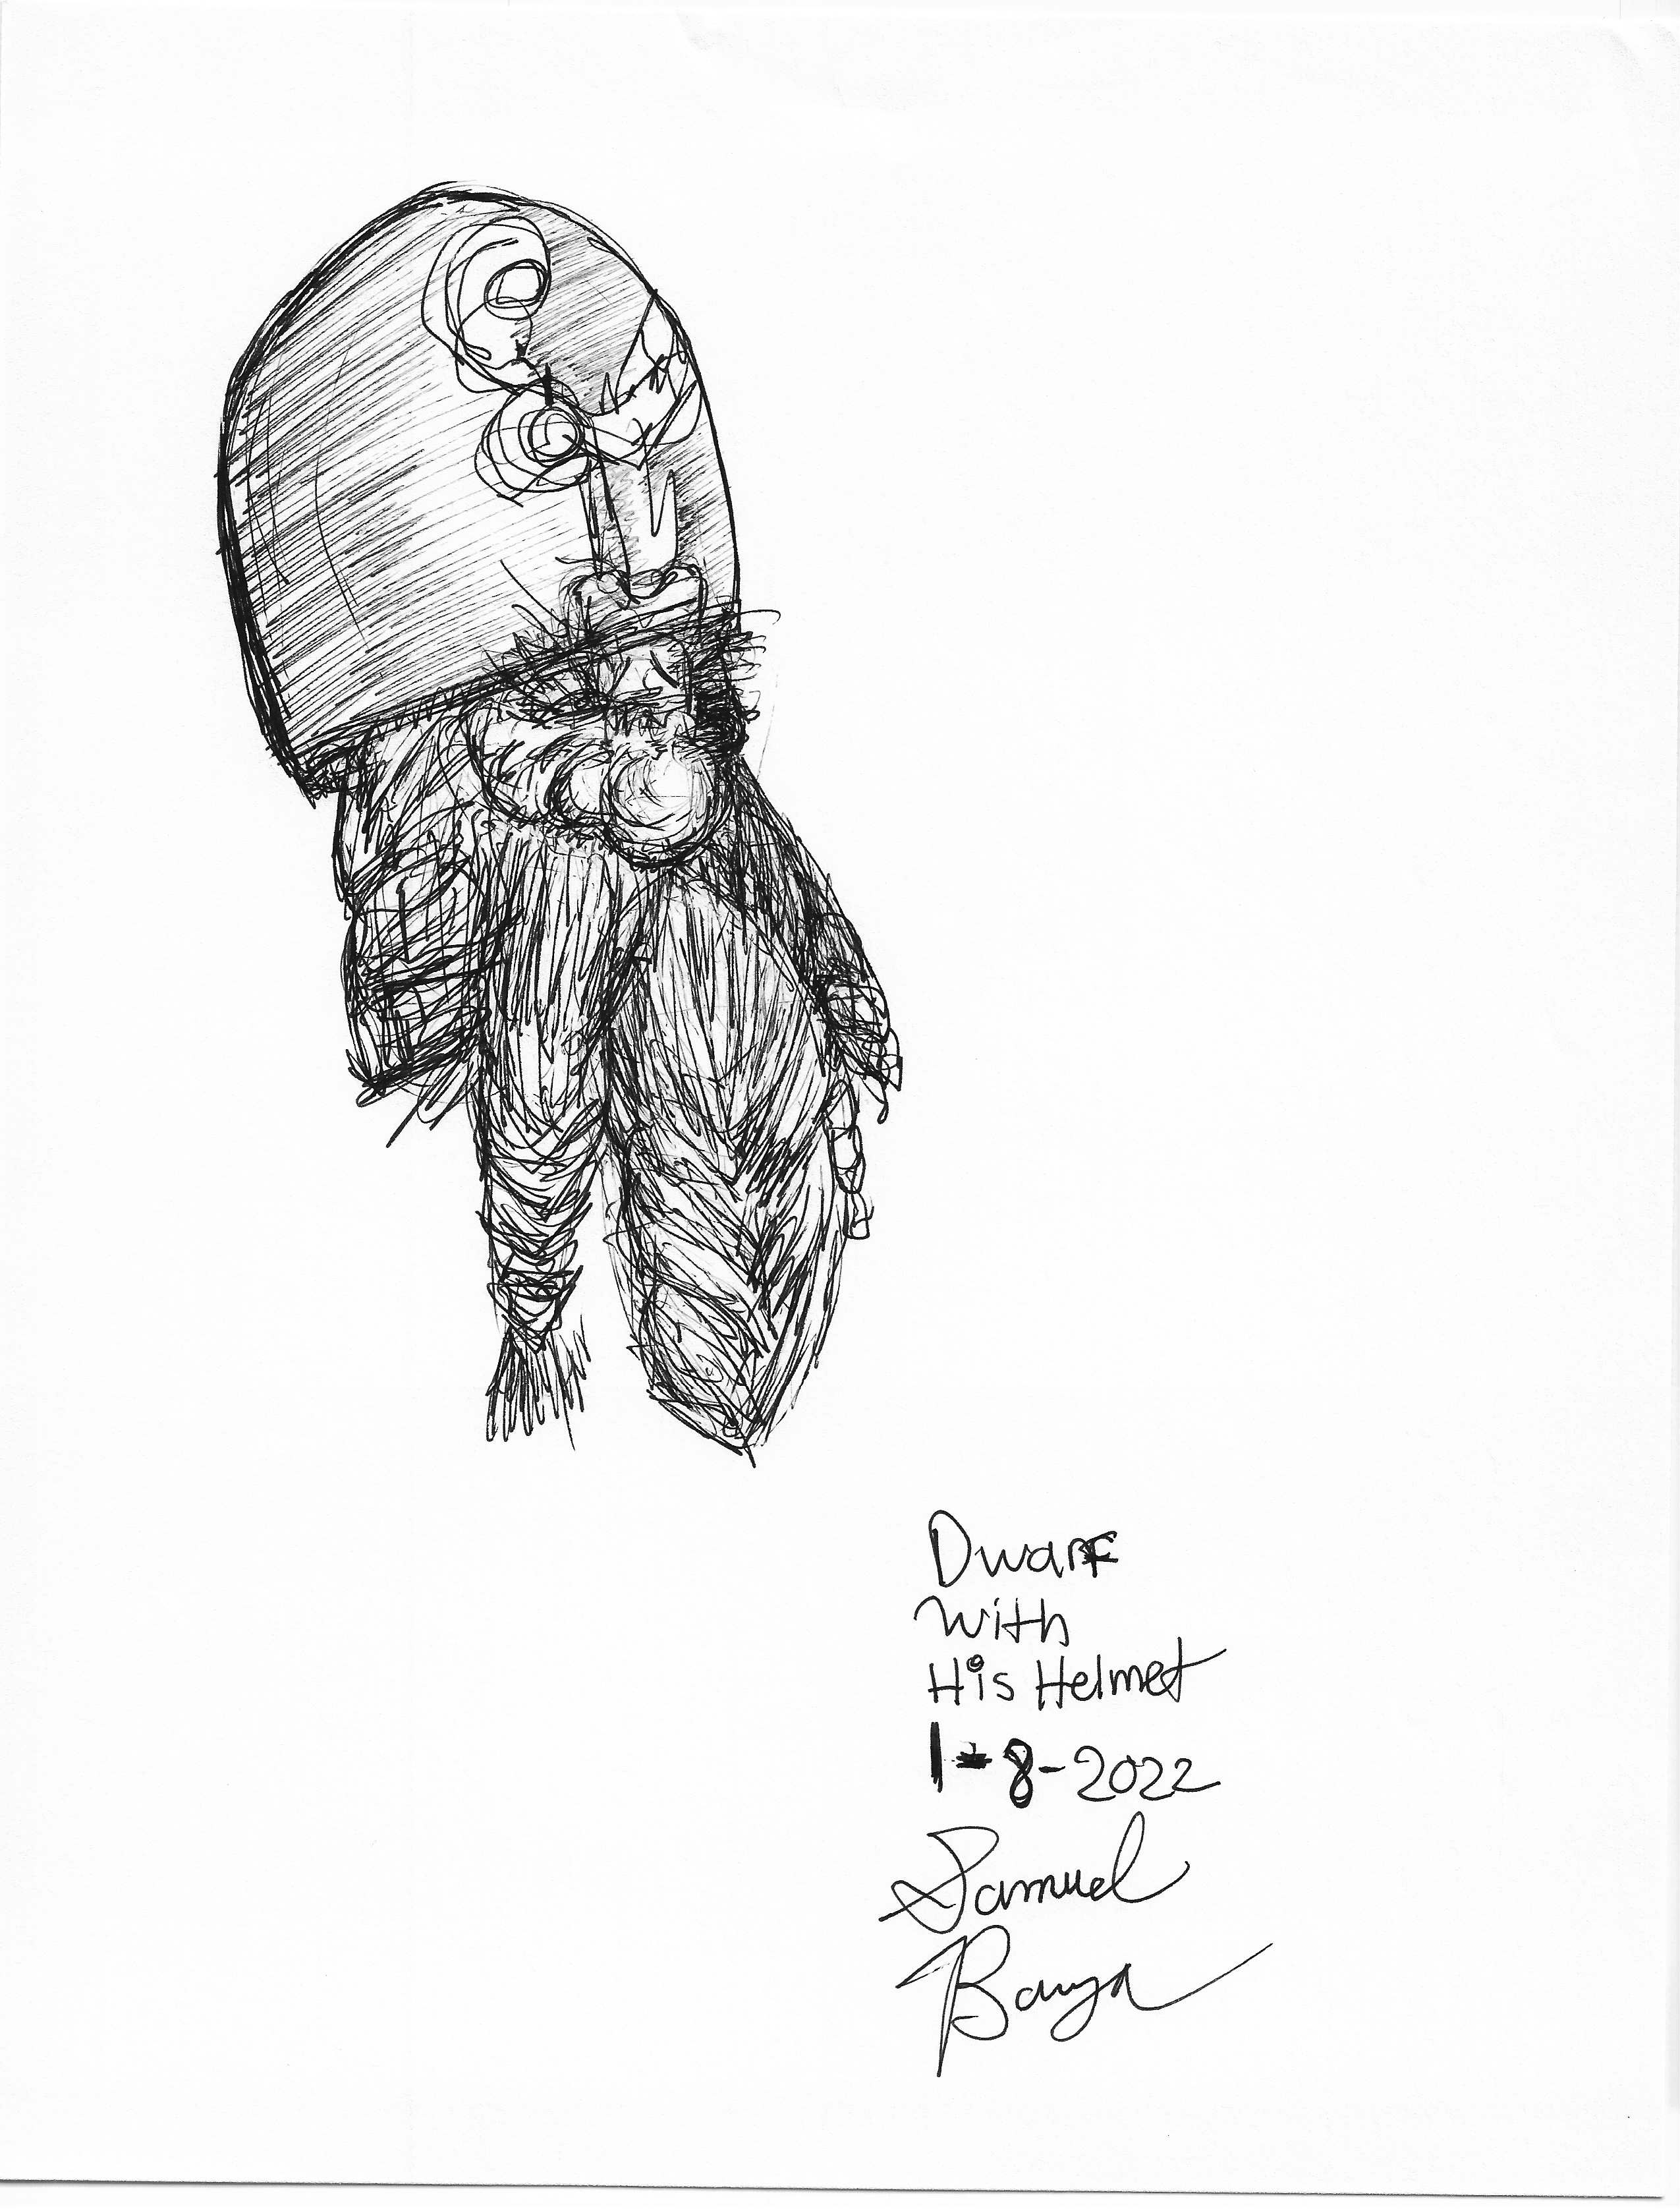 Dwarf
With
His Helmet
1-8-2022
Samuel
Banya